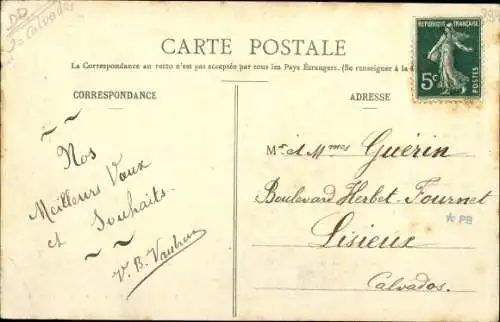 DD
Calvados
CARTE POSTALE
La Correspondance au recto n'est pas acceptée par tous les Pays Étrangers. (Se renseigner à la
CORRESPONDANCE
ADRESSE
RÉPUBLIQUE FRANÇAISE
5c
POSTES
~ ~
Nos
Meilleurs Vœux
et Souhaits.
~ ~
V. B.
Mr & Mmes Guérin
Boulevard Herbet-Fournet
Lisieux
Calvados.
*PB